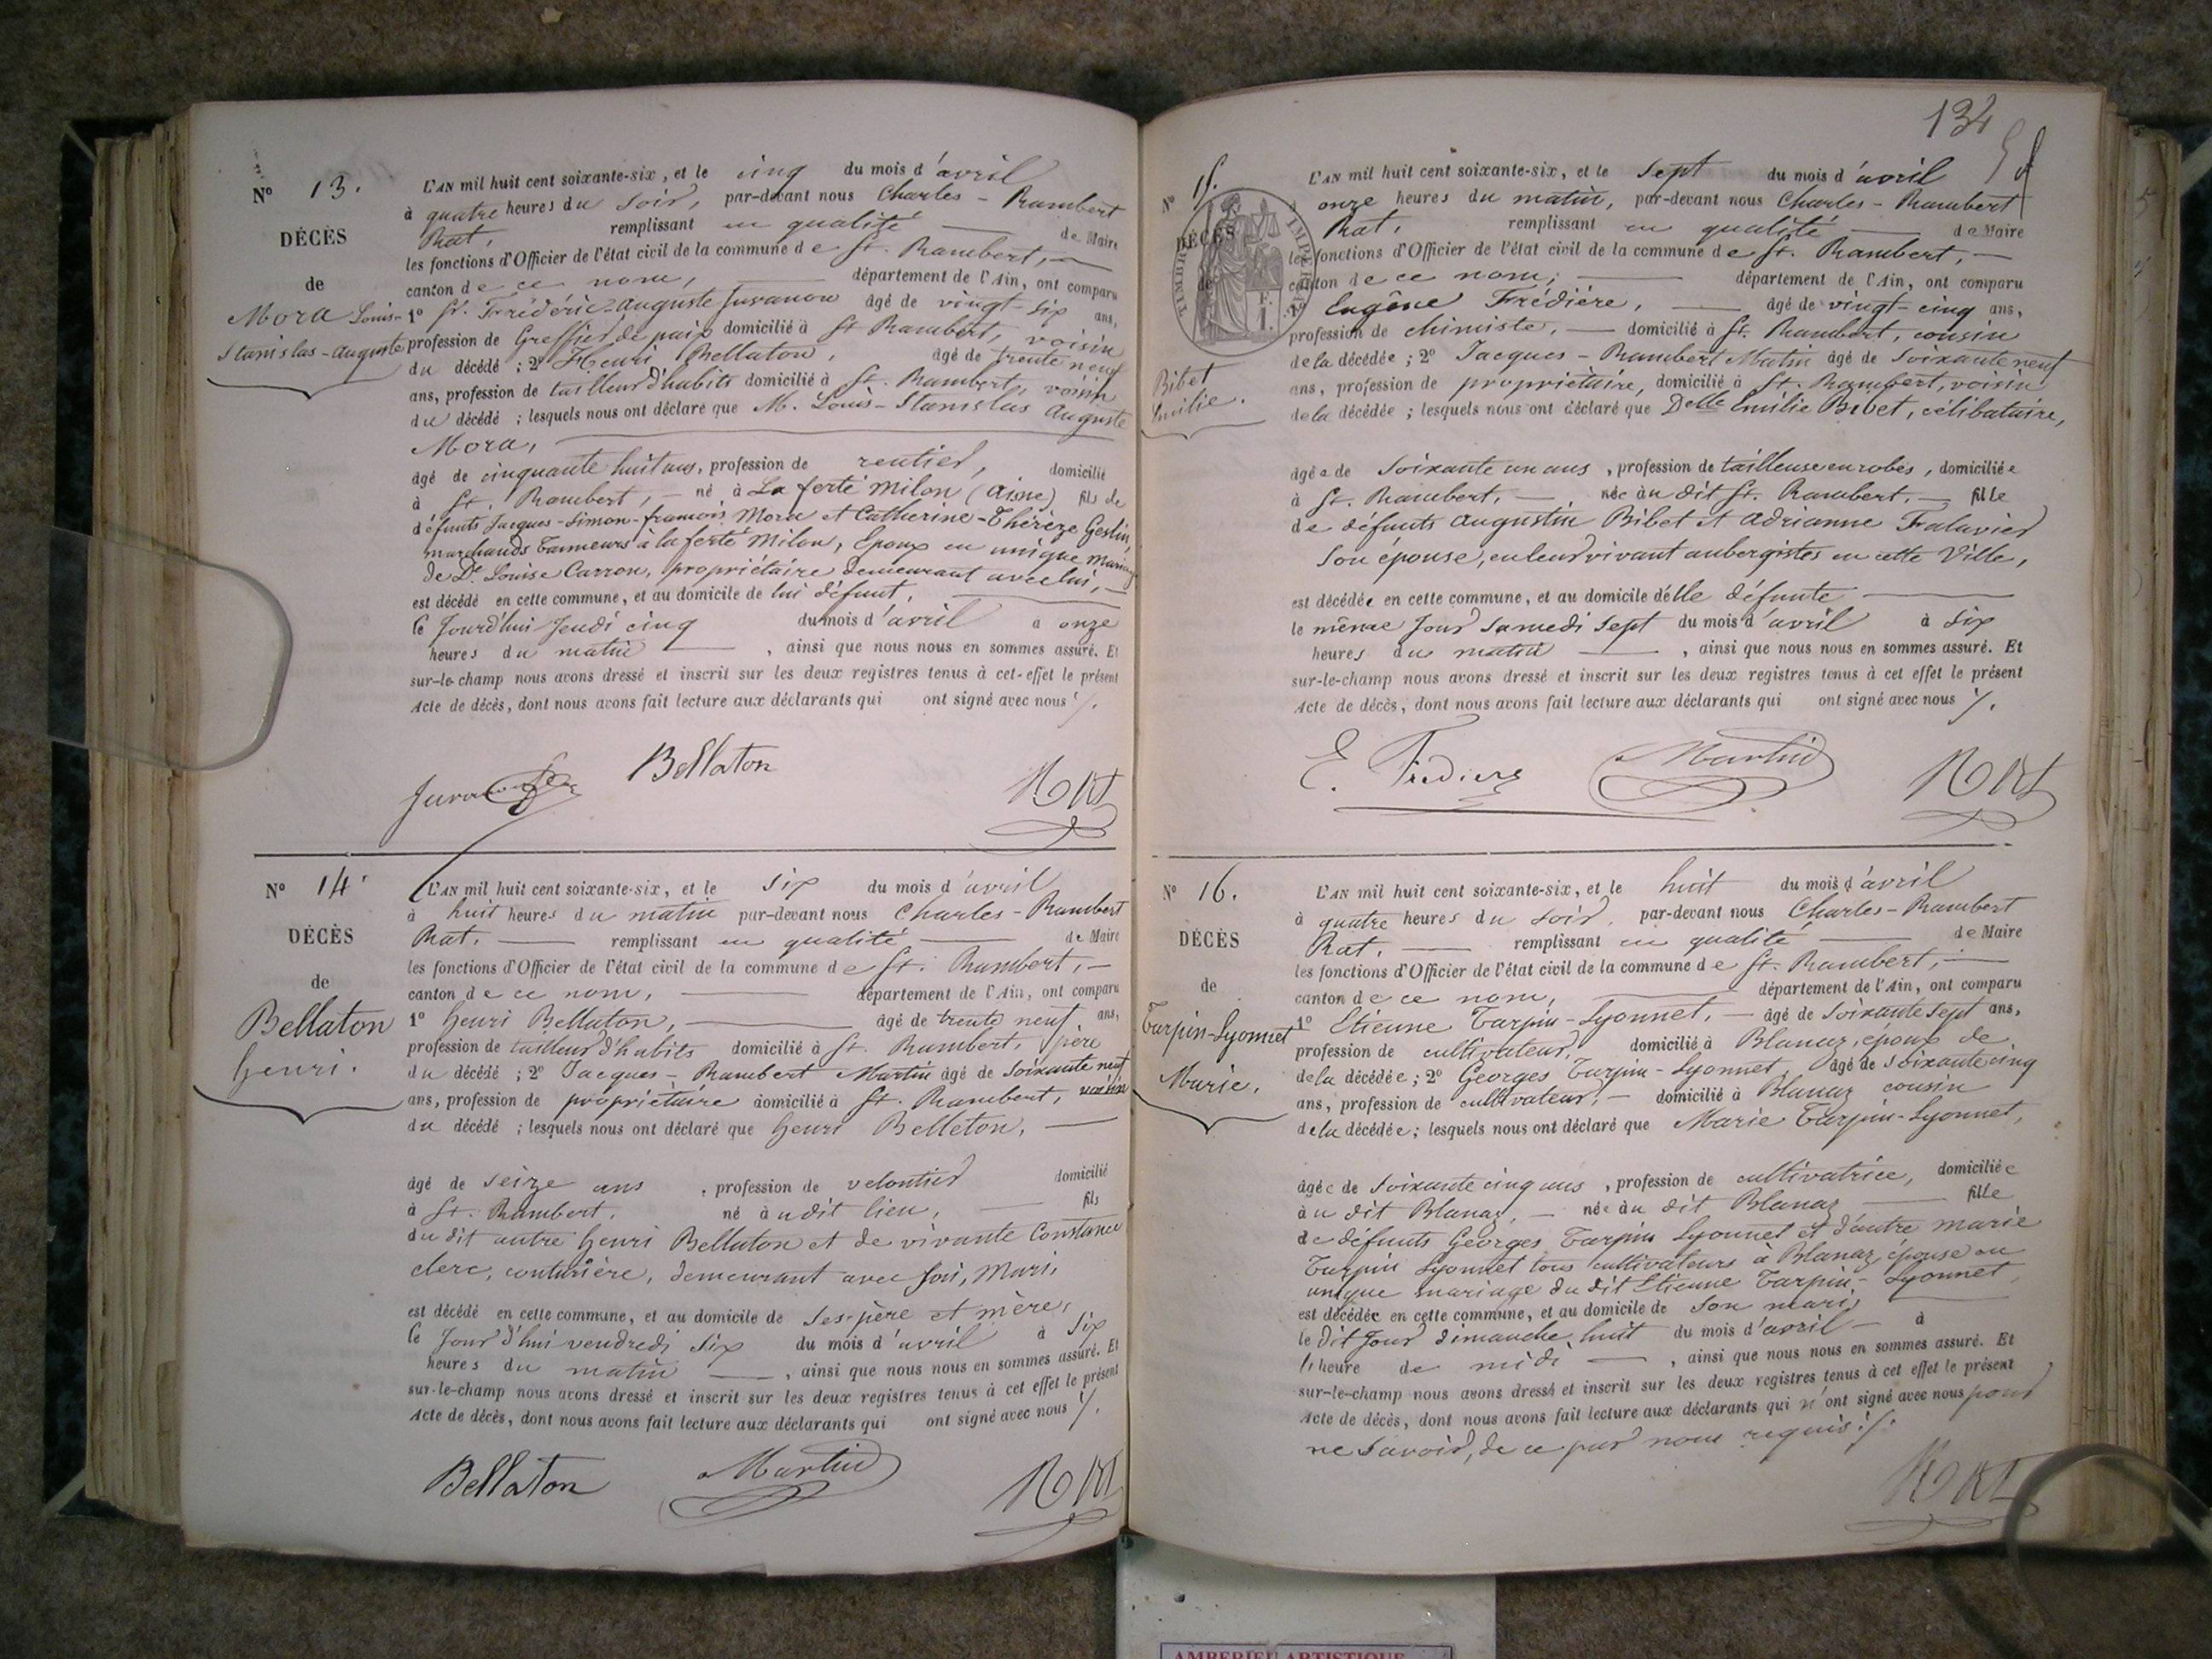 N° 13.
DÉCÈS
de
Mora Louis-
Stanislas-Auguste
L'AN mil huit cent soixante-six, et le cinq du mois d'avril
à quatre heures du soir, par-devant nous Charles-Rambert
Rat, remplissant en qualité de Maire
les fonctions d'Officier de l'état civil de la commune de St. Rambert,
canton de ce nom, département de l'Ain, ont comparu
1° Sr. Frédéric-Auguste Juvanon âgé de vingt-six ans,
profession de Greffier de paix domicilié à St Rambert, voisin
du décédé ; 2° Henri Bellaton, âgé de trente neuf
ans, profession de tailleur d'habits domicilié à St. Rambert, voisin
du décédé ; lesquels nous ont déclaré que M. Louis-Stanislas Auguste
Mora,
âgé de cinquante huit ans, profession de rentier, domicilié
à St. Rambert, né à La ferté Milon (Aisne) fils de
défunts Jacques-Simon-françois Mora et Catherine-Thérèze Geslin,
marchands Tanneurs à la ferté Milon, Epoux en unique mariage
de De. Louise Carron, propriétaire demeurant avec lui,
est décédé en cette commune, et au domicile de lui défunt,
le Jourd'hui Jeudi cinq du mois d'avril à onze
heures du matin, ainsi que nous nous en sommes assuré. Et
sur-le-champ nous avons dressé et inscrit sur les deux registres tenus à cet-effet le présent
Acte de décès, dont nous avons fait lecture aux déclarants qui ont signé avec nous ./.
Bellaton
Rat
N° 14.
DÉCÈS
de
Bellaton
henri.
L'AN mil huit cent soixante-six, et le six du mois d'avril
à huit heures du matin par-devant nous Charles-Rambert
Rat. remplissant en qualité de Maire
les fonctions d'Officier de l'état civil de la commune de St. Rambert,
canton de ce nom, département de l'Ain, ont comparu
1° henri Bellaton, âgé de trente neuf ans,
profession de tailleur d'habits domicilié à St. Rambert, père
du décédé ; 2° Jacques-Rambert Martin âgé de soixante neuf
ans, profession de propriétaire domicilié à St. Rambert, voisin
du décédé ; lesquels nous ont déclaré que henri Belleton,
âgé de seize ans, profession de veloutier domicilié
à St. Rambert. né à udit lieu, fils
du dit autre henri Bellaton et de vivante Constance
clerc, couturière, demeurant avec son, Mari,
est décédé en cette commune, et au domicile de ses père et mère,
le Jour d'hui vendredi six du mois d'avril à six
heures du matin, ainsi que nous nous en sommes assuré. Et
sur-le-champ nous avons dressé et inscrit sur les deux registres tenus à cet effet le présent
Acte de décès, dont nous avons fait lecture aux déclarants qui ont signé avec nous ./.
Bellaton Martin Rat
134
N° 15.
DÉCÈS
de
TIMBRE IMPERIAL
Bibet
Emilie.
L'AN mil huit cent soixante-six, et le sept du mois d'avril
onze heures du matin, par-devant nous Charles-Rambert
Rat, remplissant en qualité de Maire
les fonctions d'Officier de l'état civil de la commune de St. Rambert,
canton de ce nom, département de l'Ain, ont comparu
Eugêne Frédière, âgé de vingt-cinq ans,
profession de chimiste, domicilié à St. Rambert, cousin
de la décédée ; 2° Jacques-Rambert Martin âgé de soixante neuf
ans, profession de propriétaire, domicilié à St. Rambert, voisin
de la décédée ; lesquels nous ont déclaré que Delle Emilie Bibet, célibataire,
âgée de soixante un ans, profession de tailleuse en robes, domiciliée
à St. Rambert, née à u dit St. Rambert, fille
de défunts Augustin Bibet et Adrianne Falavier
son épouse, en leur vivant aubergistes en cette Ville,
est décédée en cette commune, et au domicile d'elle défunte
le même Jour Samedi sept du mois d'avril à six
heures du matin, ainsi que nous nous en sommes assuré. Et
sur-le-champ nous avons dressé et inscrit sur les deux registres tenus à cet effet le présent
Acte de décès, dont nous avons fait lecture aux déclarants qui ont signé avec nous ./.
E. Frédière Martin Rat
N° 16.
DÉCÈS
de
Tarpin-Lyonnet
Marie.
L'AN mil huit cent soixante-six, et le huit du mois d'avril
à quatre heures du soir, par-devant nous Charles-Rambert
Rat. remplissant en qualité de Maire
les fonctions d'Officier de l'état civil de la commune de St. Rambert,
canton de ce nom, département de l'Ain, ont comparu
1° Etienne Tarpin-Lyonnet, âgé de soixante sept ans,
profession de cultivateur, domicilié à Blanaz, époux de
de la décédée ; 2° Georges Tarpin-Lyonnet, âgé de soixante cinq
ans, profession de cultivateur, domicilié à Blanaz cousin
de la décédée ; lesquels nous ont déclaré que Marie Tarpin-Lyonnet,
âgée de soixante cinq ans, profession de cultivatrice, domiciliée
à u dit Blanaz, née à u dit Blanaz fille
de défunts Georges Tarpin Lyonnet et d'autre marie
Tarpin Lyonnet tous cultivateurs à Blanaz, épouse en
unique mariage du dit Etienne Tarpin-Lyonnet,
est décédée en cette commune, et au domicile de son mari,
le dit Jour dimanche huit du mois d'avril à
l'heure de midi, ainsi que nous nous en sommes assuré. Et
sur-le-champ nous avons dressé et inscrit sur les deux registres tenus à cet effet le présent
Acte de décès, dont nous avons fait lecture aux déclarants qui n'ont signé avec nous pour
ne savoir, de ce par nous requis ./.
Rat
AMBERIEU ARTISTIQUE